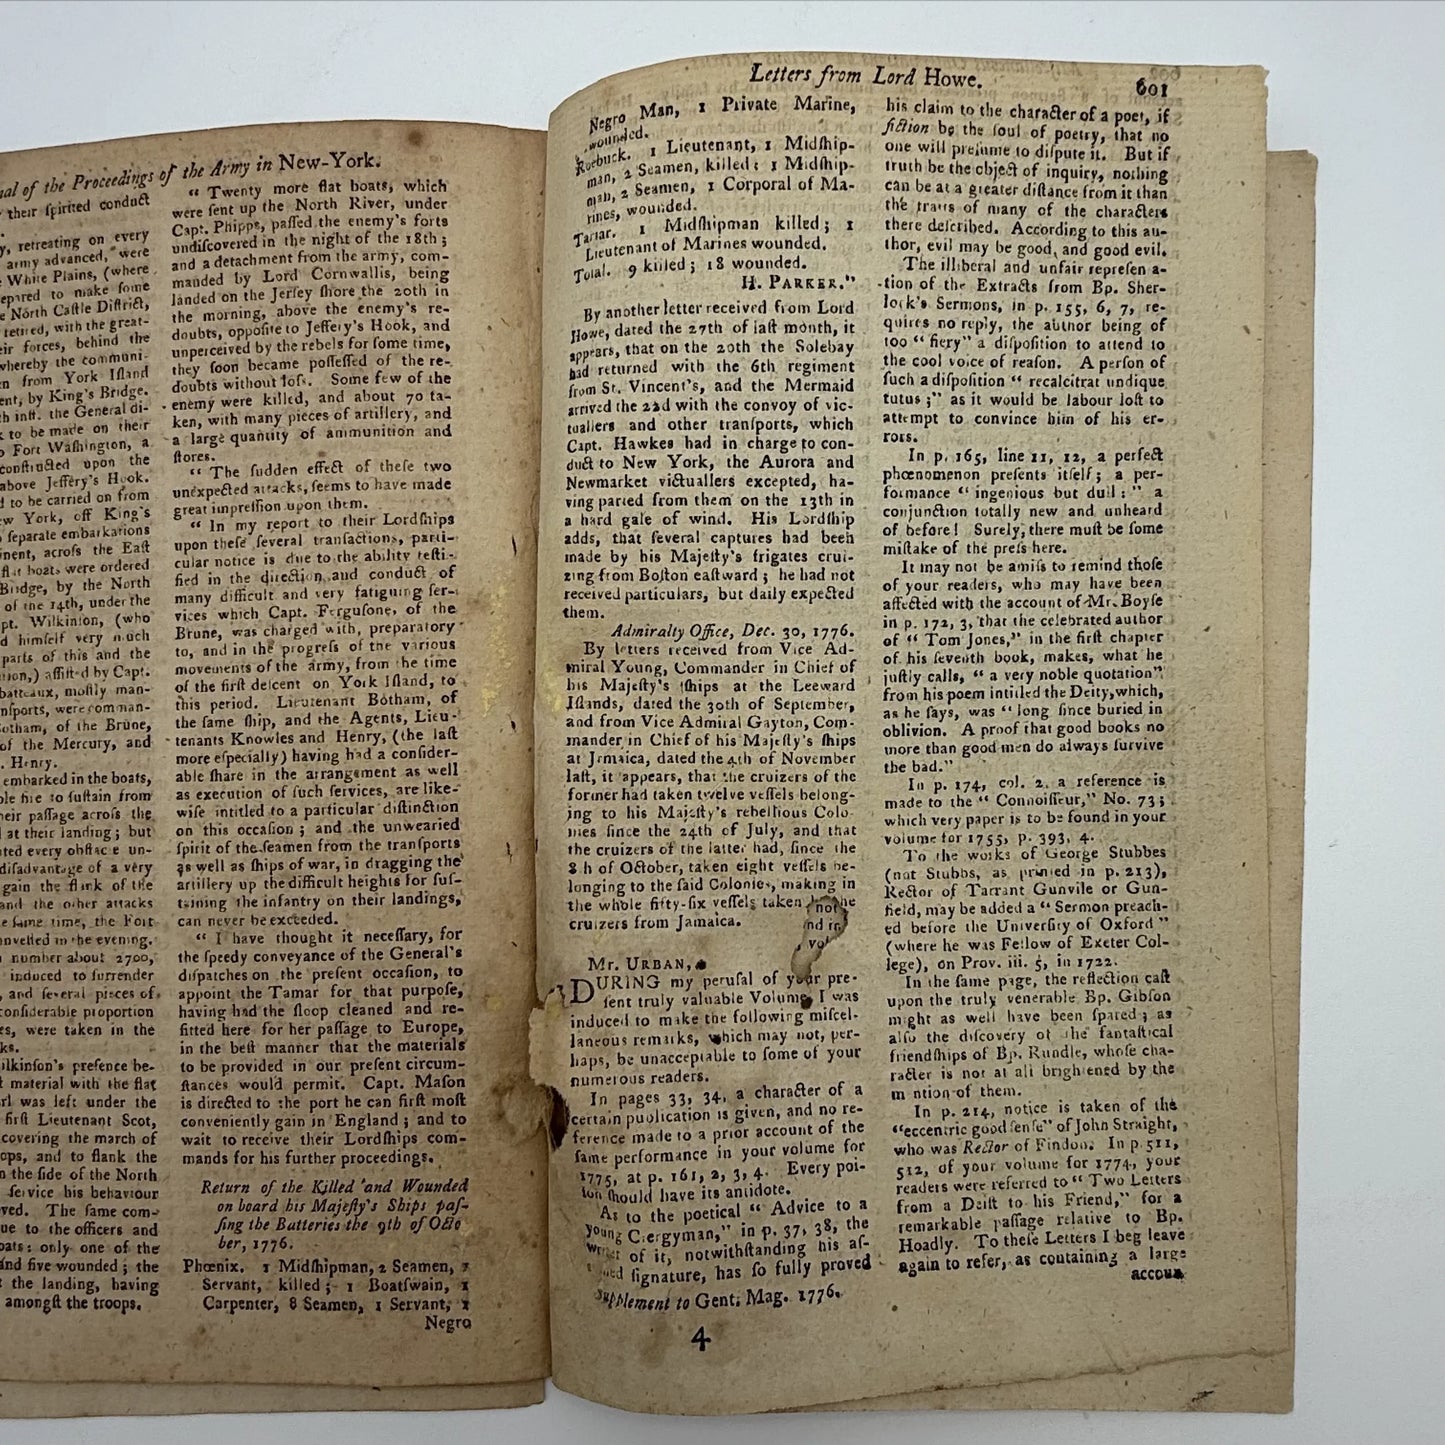 nal of the Proceedings of the Army in New-York.
their ſpirited conduct
y, retreating on every
army advanced, were
White Plains, (where
epared to make ſome
e North Caſtle Diſtrict,
retired, with the great-
eir forces, behind the
whereby the communi-
en from York Iſland
ent, by King's Bridge.
th inſt. the General di-
to be made on their
o Fort Waſhington, a
conſtructed upon the
above Jeffery's Hook.
d to be carried on from
ew York, off King's
o ſeparate embarkations
inent, acroſs the Eaſt
flat boats were ordered
Bridge, by the North
of the 14th, under the
pt. Wilkinſon, (who
d himſelf very much
parts of this and the
ion,) aſſiſted by Capt.
batteaux, moſtly man-
nſports, were comman-
otham, of the Brune,
of the Mercury, and
. Henry.
embarked in the boats,
ble fire to ſuſtain from
heir paſſage acroſs the
d at their landing; but
ted every obſtacle un-
diſadvantage of a very
gain the flank of the
and the other attacks
e ſame time, the Fort
nveſted in the evening.
number about 2700,
induced to ſurrender
, and ſeveral pieces of
conſiderable proportion
es, were taken in the
ks.
ilkinſon's preſence be-
t material with the flat
arl was left under the
firſt Lieutenant Scot,
covering the march of
ops, and to flank the
n the ſide of the North
ſervice his behaviour
oved. The ſame com-
ue to the officers and
oats: only one of the
and five wounded; the
t the landing, having
amongſt the troops.
“ Twenty more flat boats, which
were ſent up the North River, under
Capt. Phipps, paſſed the enemy's forts
undiſcovered in the night of the 18th;
and a detachment from the army, com-
manded by Lord Cornwallis, being
landed on the Jerſey ſhore the 20th in
the morning, above the enemy's re-
doubts, oppoſite to Jeffery's Hook, and
unperceived by the rebels for ſome time,
they ſoon became poſſeſſed of the re-
doubts without loſs. Some few of the
enemy were killed, and about 70 ta-
ken, with many pieces of artillery, and
a large quantity of ammunition and
ſtores.
“ The ſudden effect of theſe two
unexpected attacks, ſeems to have made
great impreſſion upon them.
“ In my report to their Lordſhips
upon theſe ſeveral tranſactions, parti-
cular notice is due to the ability teſti-
fied in the direction and conduct of
many difficult and very fatiguing ſer-
vices which Capt.Ferguſone, of the
Brune, was charged with, preparatory
to, and in the progreſs of the various
movements of the army, from the time
of the firſt deſcent on York Iſland, to
this period. Lieutenant Botham, of
the ſame ſhip, and the Agents, Lieu-
tenants Knowles and Henry, (the laſt
more eſpecially) having had a conſider-
able ſhare in the arrangement as well
as execution of ſuch ſervices, are like-
wiſe intitled to a particular diſtinction
on this occaſion; and the unwearied
ſpirit of the ſeamen from the tranſports
as well as ſhips of war, in dragging the
artillery up the difficult heights for ſuſ-
taining the infantry on their landings,
can never be exceeded.
“ I have thought it neceſſary, for
the ſpeedy conveyance of the General's
diſpatches on the preſent occaſion, to
appoint the Tamar for that purpoſe,
having had the ſloop cleaned and re-
fitted here for her paſſage to Europe,
in the beſt manner that the materials
to be provided in our preſent circum-
ſtances would permit. Capt. Maſon
is directed to the port he can firſt moſt
conveniently gain in England; and to
wait to receive their Lordſhips com-
mands for his further proceedings.
Return of the Killed and Wounded
on board his Majeſty's Ships paſ-
ſing the Batteries the 9th of Octo
ber, 1776.
Phœnix. 1 Midſhipman, 2 Seamen, 1
Servant, killed; 1 Boatſwain, 1
Carpenter, 8 Seamen, 1 Servant, 1
Negro
Letters from Lord Howe. 601
Negro Man, 1 Private Marine,
wounded.
Roebuck. 1 Lieutenant, 1 Midſhip-
man, 2 Seamen, killed: 1 Midſhip-
man, 2 Seamen, 1 Corporal of Ma-
rines, wounded.
Tartar. 1 Midſhipman killed; 1
Lieutenant of Marines wounded.
Total. 9 killed; 18 wounded.
H. PARKER.”
By another letter received from Lord
Howe, dated the 27th of laſt month, it
appears, that on the 20th the Solebay
had returned with the 6th regiment
from St. Vincent's, and the Mermaid
arrived the 22d with the convoy of vic-
tuallers and other tranſports, which
Capt. Hawkes had in charge to con-
duct to New York, the Aurora and
Newmarket victuallers excepted, ha-
ving parted from them on the 13th in
a hard gale of wind. His Lordſhip
adds, that ſeveral captures had been
made by his Majeſty's frigates crui-
zing from Boſton eaſtward; he had not
received particulars, but daily expected
them.
Admiralty Office, Dec. 30, 1776.
By letters received from Vice Ad-
miral Young, Commander in Chief of
his Majeſty's ſhips at the Leeward
Iſlands, dated the 30th of September,
and from Vice Admiral Gayton, Com-
mander in Chief of his Majeſty's ſhips
at Jamaica, dated the 4th of November
laſt, it appears, that the cruizers of the
former had taken twelve veſſels belong-
ing to his Majeſty's rebellious Colo-
nies ſince the 24th of July, and that
the cruizers of the latter had, ſince the
8 h of October, taken eight veſſels be-
longing to the ſaid Colonies, making in
the whole fifty-ſix veſſels taken he
cruizers from Jamaica.
not
nd in
vol
Mr. URBAN,
DURING my peruſal of your pre-
ſent truly valuable Volume, I was
induced to make the following miſcel-
laneous remarks, which may not, per-
haps, be unacceptable to ſome of your
numerous readers.
In pages 33, 34, a character of a
certain publication is given, and no re-
ference made to a prior account of the
ſame performance in your volume for
1775, at p. 161, 2, 3, 4. Every poi-
ſon ſhould have its antidote.
As to the poetical “ Advice to a
young Clergyman,” in p. 37, 38, the
writer of it, notwithſtanding his aſ-
ſigned ſignature, has ſo fully proved
Supplement to Gent. Mag. 1776.
4
his claim to the character of a poet, if
fiction be the ſoul of poetry, that no
one will preſume to diſpute it. But if
truth be the object of inquiry, nothing
can be at a greater diſtance from it than
the traits of many of the characters
there deſcribed. According to this au-
thor, evil may be good, and good evil.
The illiberal and unfair repreſen a-
tion of the Extracts from Bp. Sher-
lock's Sermons, in p. 155, 6, 7, re-
quires no reply, the author being of
too “ fiery” a diſpoſition to attend to
the cool voice of reaſon. A perſon of
ſuch a diſpoſition “ recalcitrat undique
tutus;” as it would be labour loſt to
attempt to convince him of his er-
rors.
In p. 165, line 11, 12, a perfect
phœnomenon preſents itſelf; a per-
formance “ ingenious but dull:” a
conjunction totally new and unheard
of before! Surely, there muſt be ſome
miſtake of the preſs here.
It may not be amiſs to remind thoſe
of your readers, who may have been
affected with the account of Mr. Boyſe
in p. 172, 3, that the celebrated author
of “ Tom Jones,” in the firſt chapter
of his ſeventh book, makes, what he
juſtly calls, “ a very noble quotation”
from his poem intitled the Deity, which,
as he ſays, was “ long ſince buried in
oblivion. A proof that good books no
more than good men do always ſurvive
the bad.”
In p. 174, col. 2. a reference is
made to the “ Connoiſſeur,” No. 73;
which very paper is to be found in your
volume for 1755, p. 393, 4.
To the works of George Stubbes
(not Stubbs, as printed in p. 213),
Rector of Tarrant Gunvile or Gun-
field, may be added a “ Sermon preach-
ed before the Univerſity of Oxford”
(where he was Fellow of Exeter Col-
lege), on Prov. iii. 5, in 1722.
In the ſame page, the reflection caſt
upon the truly venerable Bp. Gibſon
might as well have been ſpared; as
alſo the diſcovery of the fantaſtical
friendſhips of Bp. Rundle, whoſe cha-
racter is not at all brightened by the
m ntion of them.
In p. 214, notice is taken of the
“eccentric good ſenſe” of John Straight,
who was Rector of Findon. In p. 511,
512, of your volume for 1774, your
readers were referred to “ Two Letters
from a Deiſt to his Friend,” for a
remarkable paſſage relative to Bp.
Hoadly. To theſe Letters I beg leave
again to refer, as containing a large
accoun